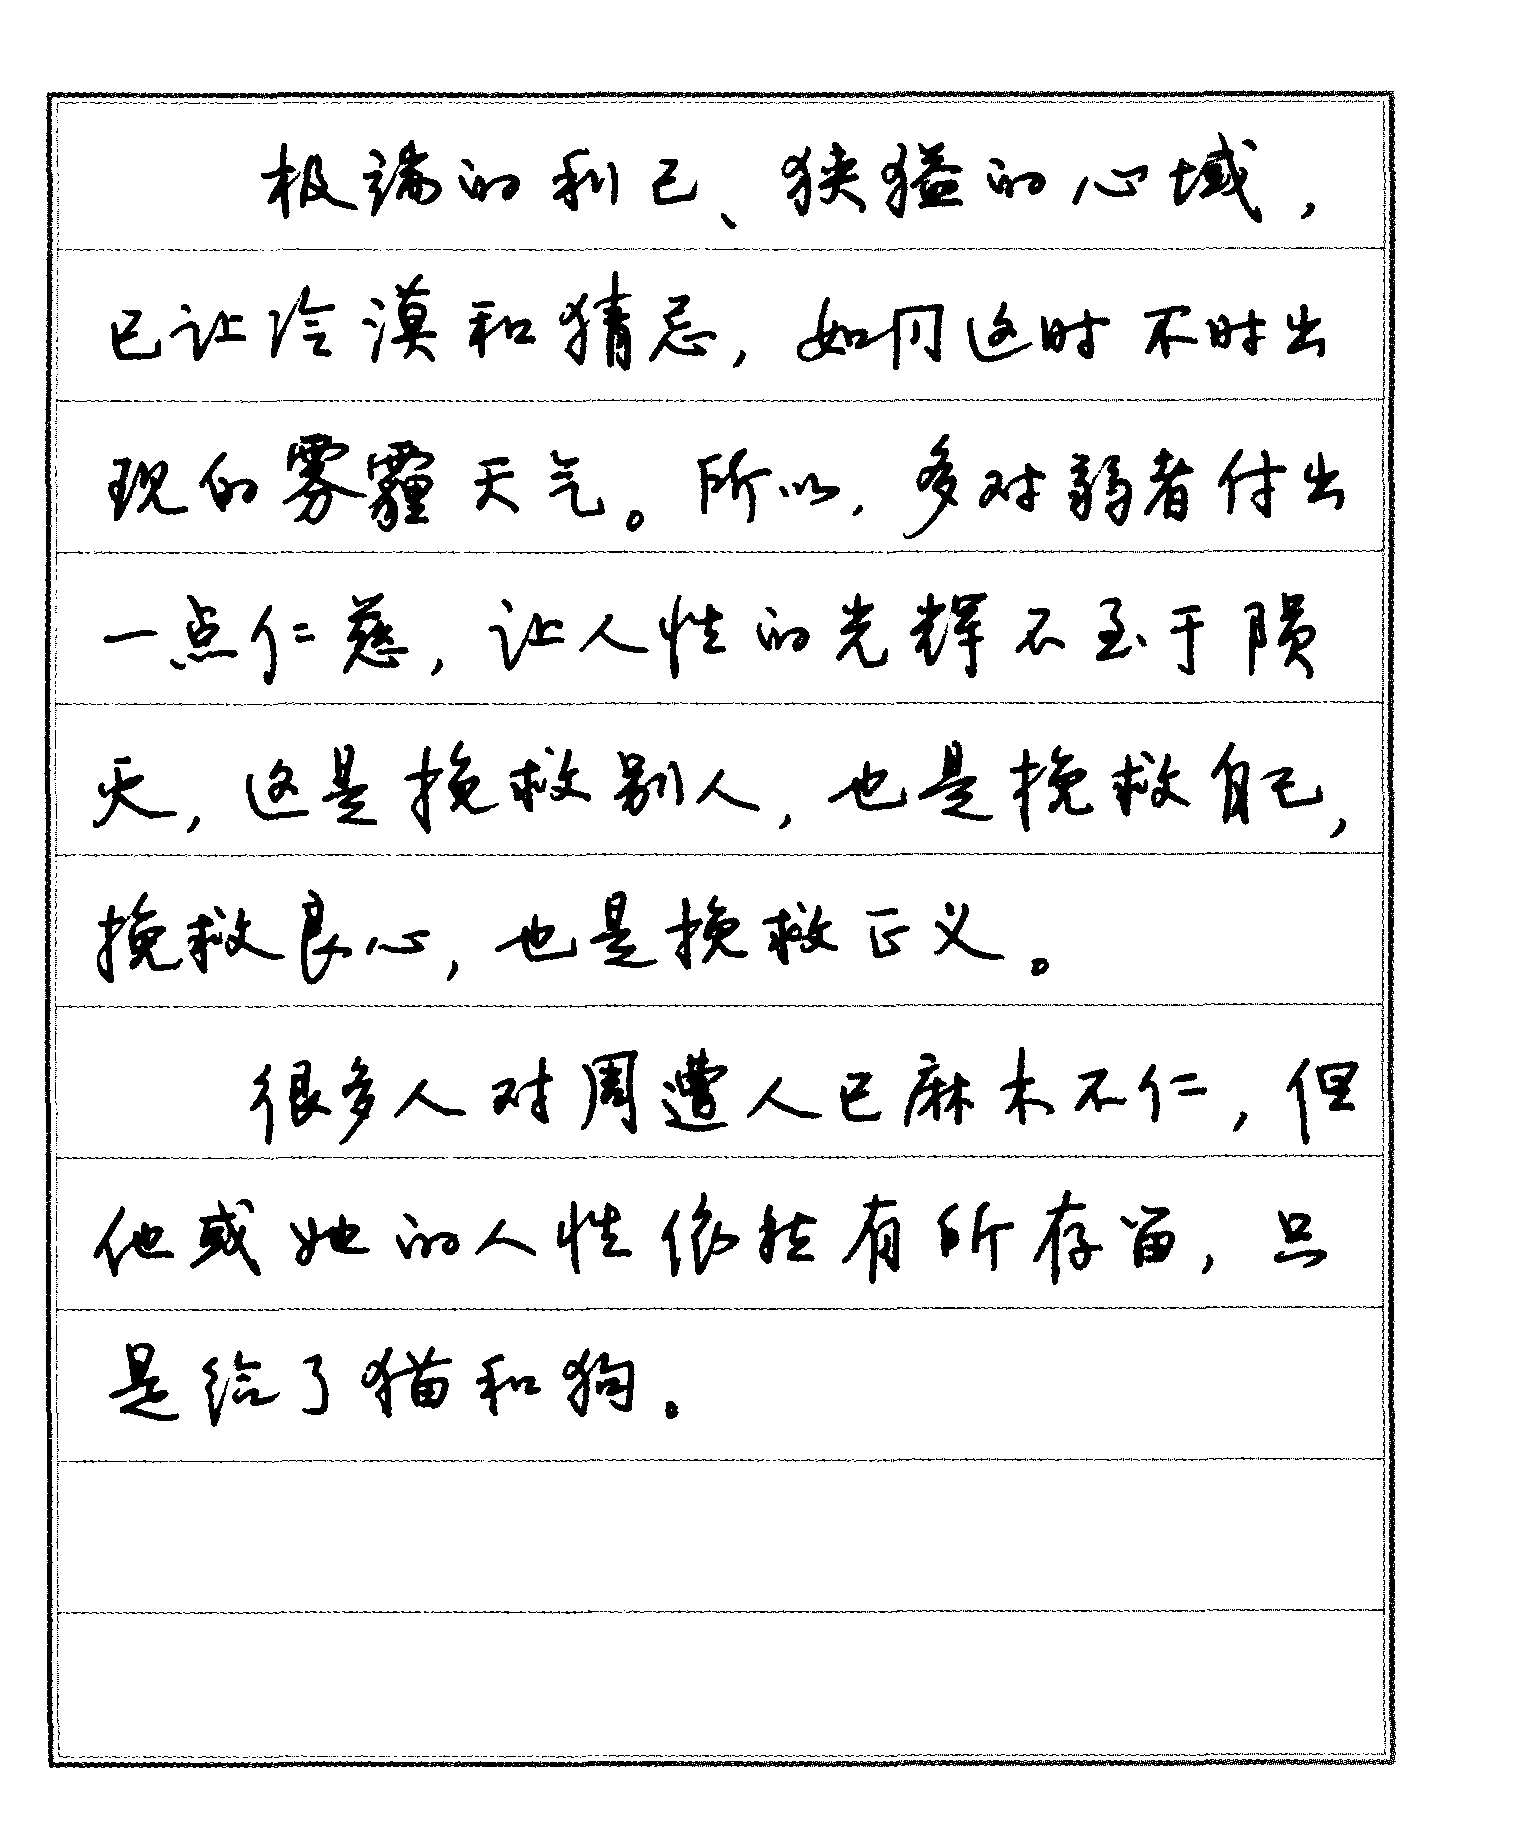 极端的利己、狭猛的心域，
已让冷漠和猜忌，如冈这时不时出
现的雾霾天气。所以，多对弱者付出
一点仁慈，让人性的光辉不至于陨
灭，这是挽救别人，也是挽救自己，
挽救良心，也是挽救正义。
很多人对周遭人已麻木不仁，但
他或她的人性依然有所存留，只
是给了猫和狗。